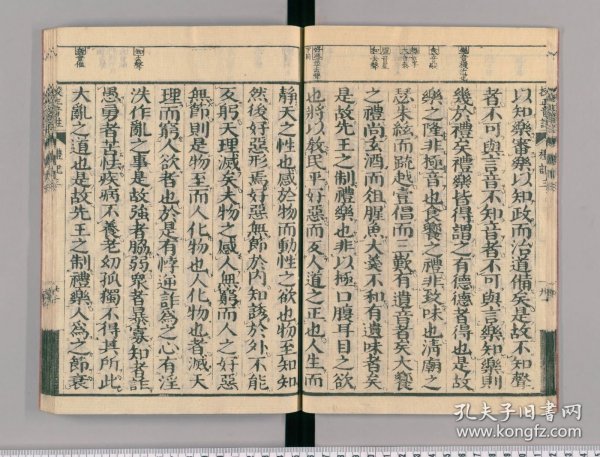 以知樂審樂以知政而治道備矣是故不知聲
者不可與言音不知音者不可與言樂知樂則
幾於禮矣禮樂皆得謂之有德德者得也是故
樂之隆非極音也食饗之禮非致味也清廟之
瑟朱絃而疏越壹倡而三歎有遺音者矣大饗
之禮尚玄酒而俎腥魚大羹不和有遺味者矣
是故先王之制禮樂也非以極口腹耳目之欲
也將以教民平好惡而反人道之正也人生而
靜天之性也感於物而動性之欲也物至知知
然後好惡形焉好惡無節於內知誘於外不能
反躬天理滅矣夫物之感人無窮而人之好惡
無節則是物至而人化物也人化物也者滅天
理而窮人欲者也於是有悖逆詐偽之心有淫
泆作亂之事是故強者脅弱眾者暴寡知者詐
愚勇者苦怯疾病不養老幼孤獨不得其所此
大亂之道也是故先王之制禮樂人為之節衰
孔夫子旧书网
www.kongfz.com